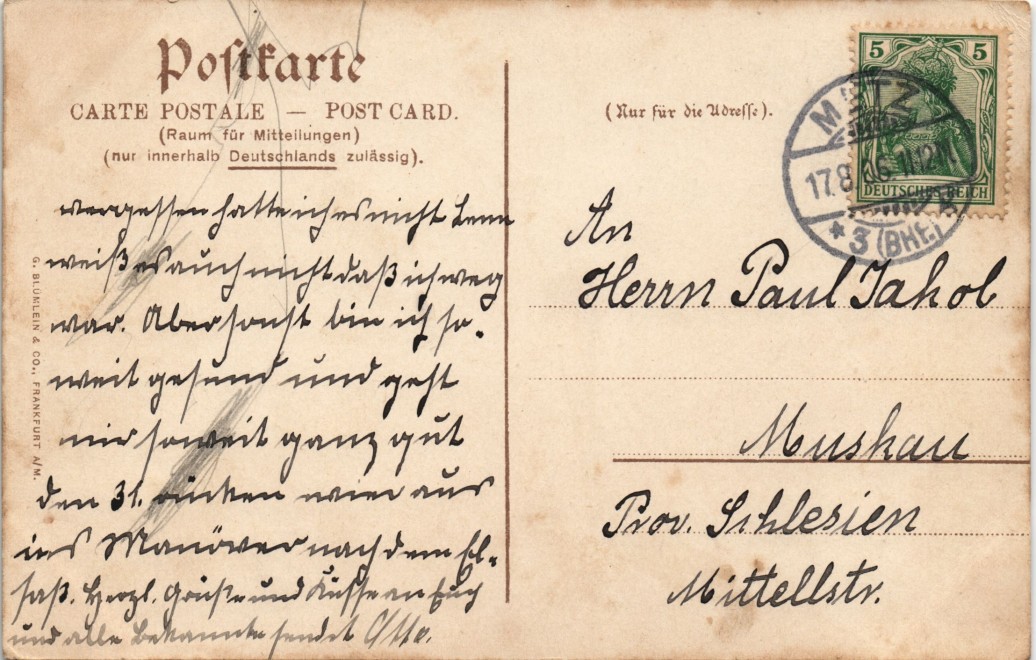 Postkarte
CARTE POSTALE — POST CARD.
(Raum für Mitteilungen)
(nur innerhalb Deutschlands zulässig).
vergessen hatte ich es nicht denn
weiß es auch nicht daß ich weg
war. Aber sonst bin ich so-
weit gesund und geht
mir soweit ganz gut
den 31. rücken wir aus
ins Manöver nach dem El-
saß. Herzl. Grüße und Küsse an Euch
und alle Bekannte sendet Otto.
G. BLÜMLEIN & CO., FRANKFURT A/M.
(Nur für die Adresse).
5 5
DEUTSCHES REICH
METZ
17.8.06. 11-12V.
* 3 (BHF.)
An
Herrn Paul Jakob
Muskau
Prov. Schlesien
Mittellstr.